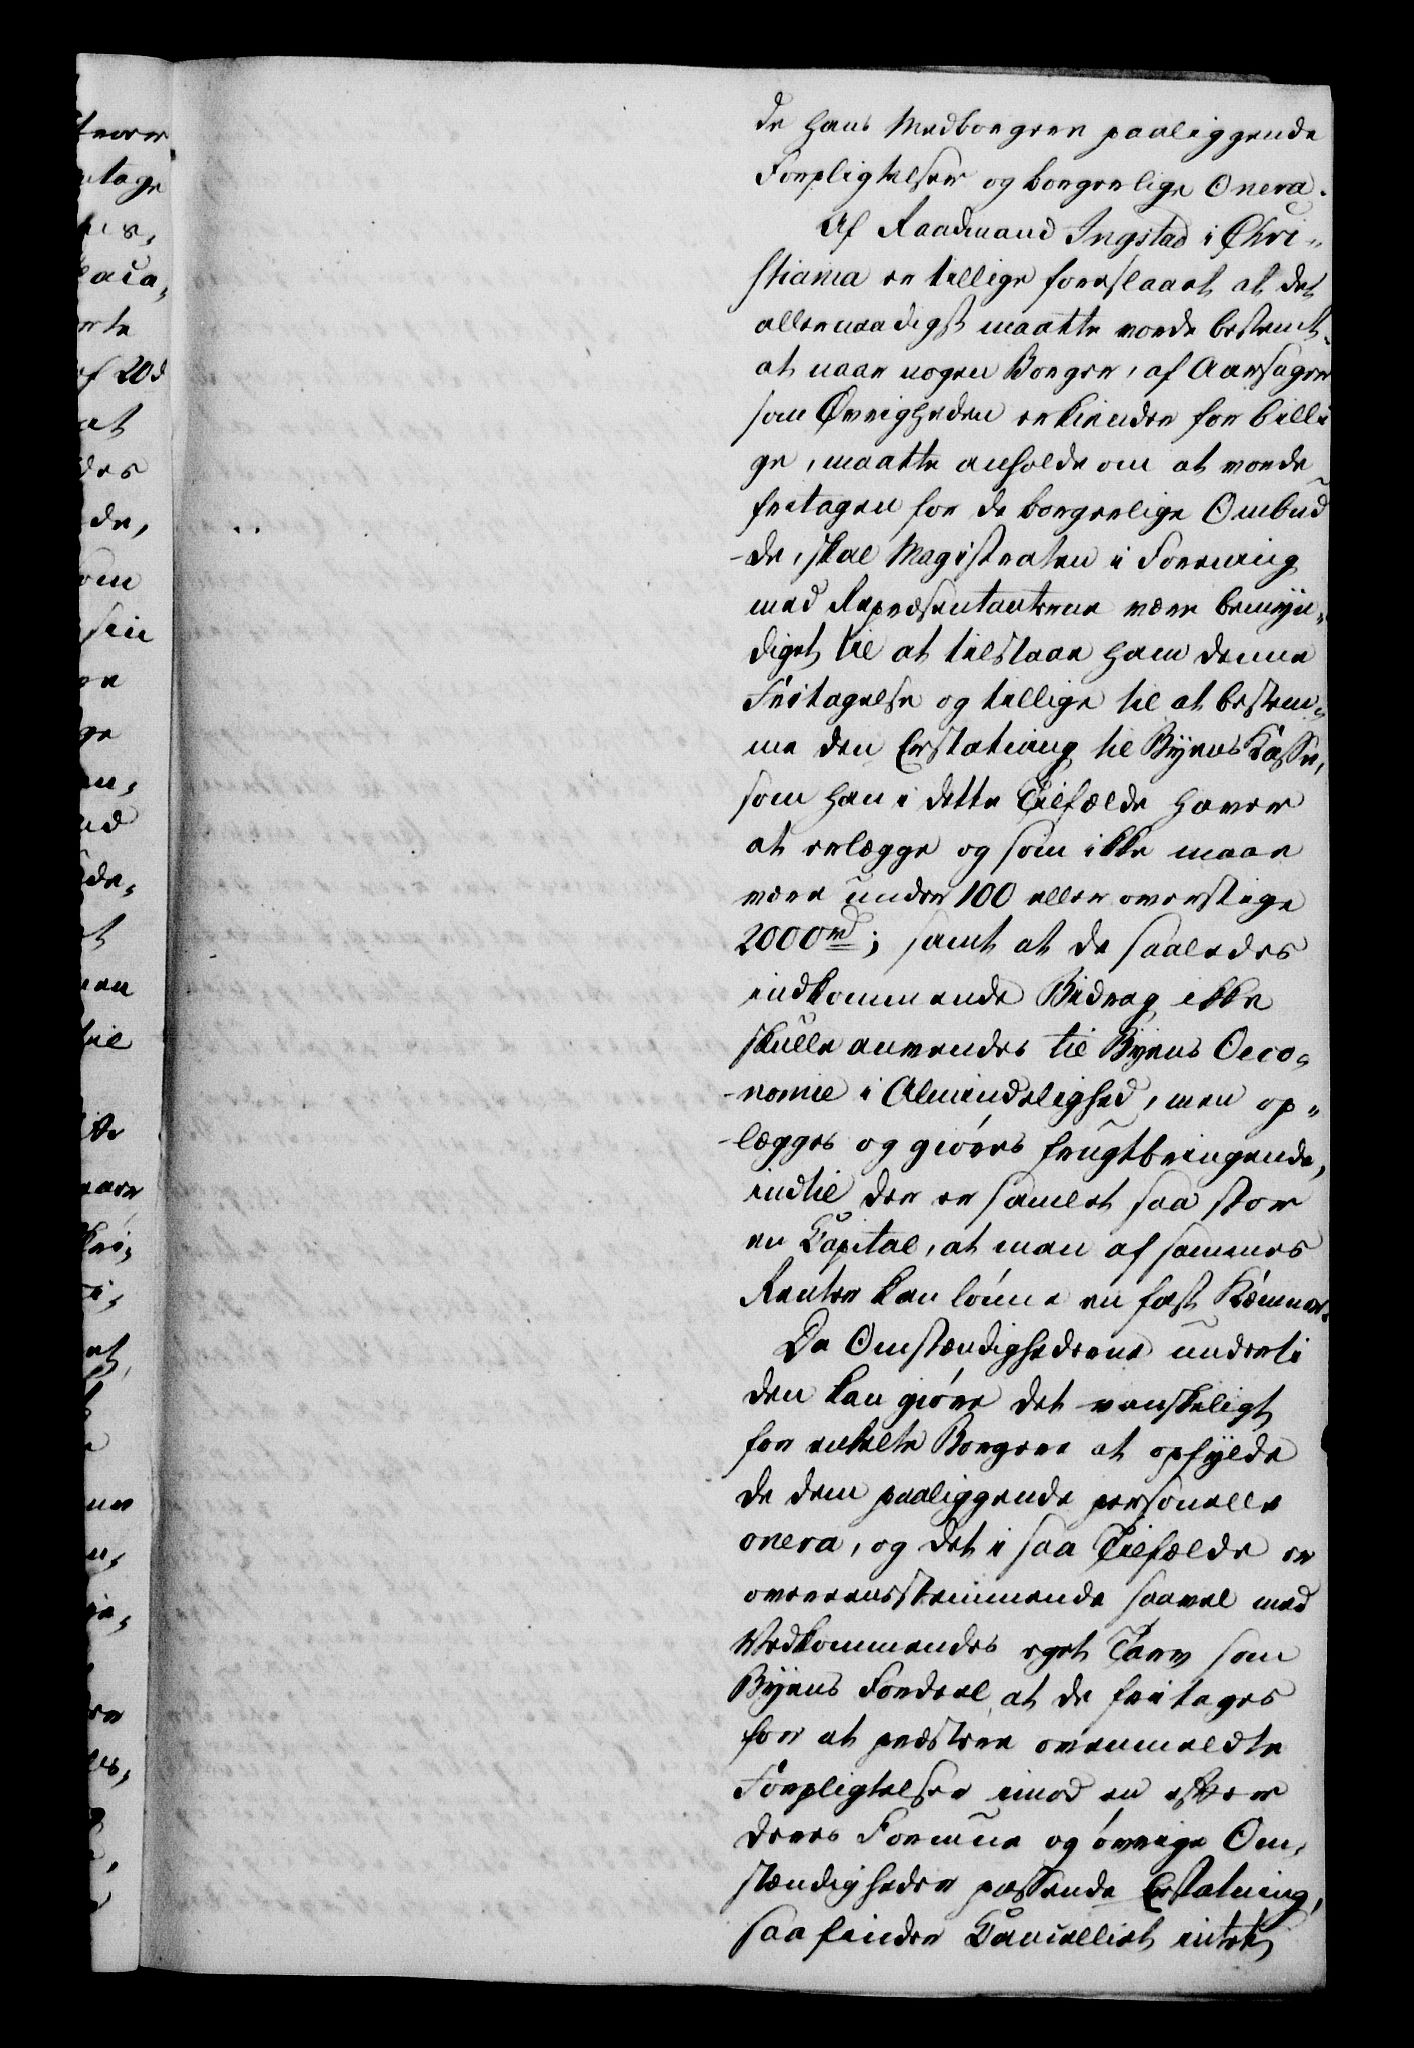 de hans Medborgere paaliggende
Forpligtelser og borgerlige Onera.
Af Raadmand Ingstad i Chri„
stiania er tillige foreslaaet at det
allernaadigst maatte vorde bestemt,
at naar nogen Borger, af Aarsager
som Øvrigheden erkiender for billi
ge, maatte anholde om at vorde
fritagen for de borgerlige Ombud
-de, skal Magistraten i Forening
med Repræsentanterne være bemyn„
diget til at tilstaae ham denne
Fritagelse og tillige til at bestem„
me den Erstatning til Byens Kasse,
som han i dette Tilfælde haver
at erlægge og som ikke maae
være under 100 eller overstige
2000rd; samt at de saaledes
indkommende Bidrag ikke
skulle anvendes til Byens Oeco„
-nomie i Almindelighed, men op„
-lægges og giøres frugtbringende,
indtil der er samlet saa stor
en Capital, at man af sammes
Renter kan lønne en fast Kæmner.
Da Omstændighederne underti
den kan giøre det vanskeligt
for enkelte Borgere at opfylde
de dem paaliggende personelle
onera, og det i saa Tilfælde er
overeensstemmende saavel med
Vedkommendes eget Tarv som
Byens Fordeel, at de fritages
for at præstere ovenmeldte
Forpligtelser imod en efter
deres Formue og øvrige Om„
stændigheder passende Erstatning,
saa finder Cancelliet intet